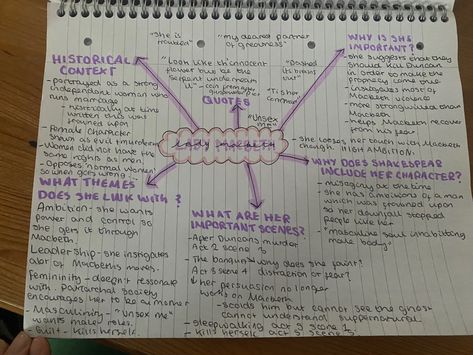 "she is troubled"
"my dearest partner of greatness"
"Look like th'innocent flower but be the serpent underneath it" - coin
"Dashed its brains out"
"Tis her command"
"unsex me"
QUOTES
lady macbeth
HISTORICAL CONTEXT
- portrayed as a strong independent woman who runs marriage
- Particularly at time written this was frowned upon
- Female character shown as evil (murdering)
- Women did not have the same rights as men.
- Opposes 'normal women' so when goes wrong.
WHY IS SHE IMPORTANT?
- she suggests that they should kill Duncan in order to make the prophecy come true
- instigates most of Macbeth violence
- more strongwilled than Macbeth
- helps Macbeth recover from his fear
- she looses her touch with Macbeth though. HIGH AMBITION.
WHY DOES SHAKESPEAR INCLUDE HER CHARACTER?
- misogyny at the time
- she has ambitions of a man which was frowned upon so her downfall stopped people like her
- "masculine soul inhabiting male body"
WHAT THEMES DOES SHE LINK WITH?
Ambition - she wants power and control so she gets it through Macbeth
Leadership - she instigates alot of Macbeths moves.
Femininity - doesn't resonate with. Patriarchal society encourages her to be
- Masculinity - "unsex me" wants male roles.
- Guilt - kills herself
WHAT ARE HER IMPORTANT SCENES?
- After Duncans murder Act 2 scene 3
- The banquet Act 3 scene 4
why does she faint? distraction or fear?
↓ her persuasion no longer works on Macbeth
- scolds him but cannot see the ghost cannot understand supernatural
- sleepwalking act 5 scene 1
- kills herself act 5 scene 5